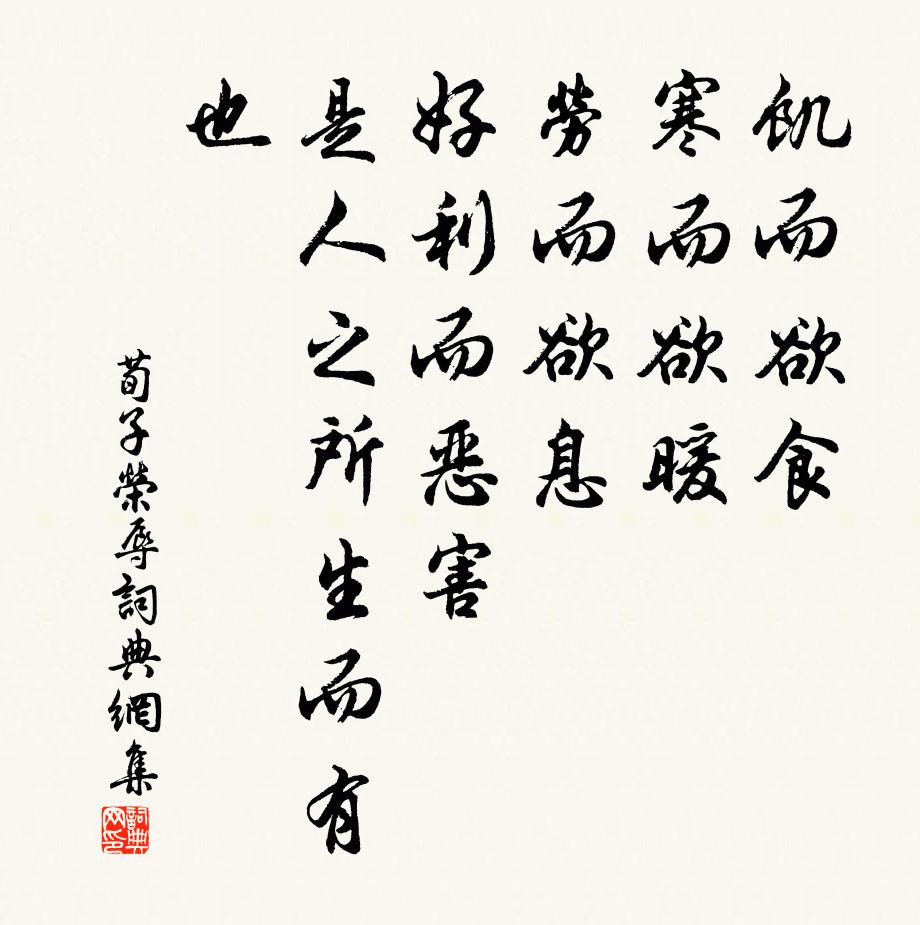 飢而欲食
寒而欲暖
勞而欲息
好利而恶害
是人之所生而有
也
荀子榮辱詞典網集
詞典网印